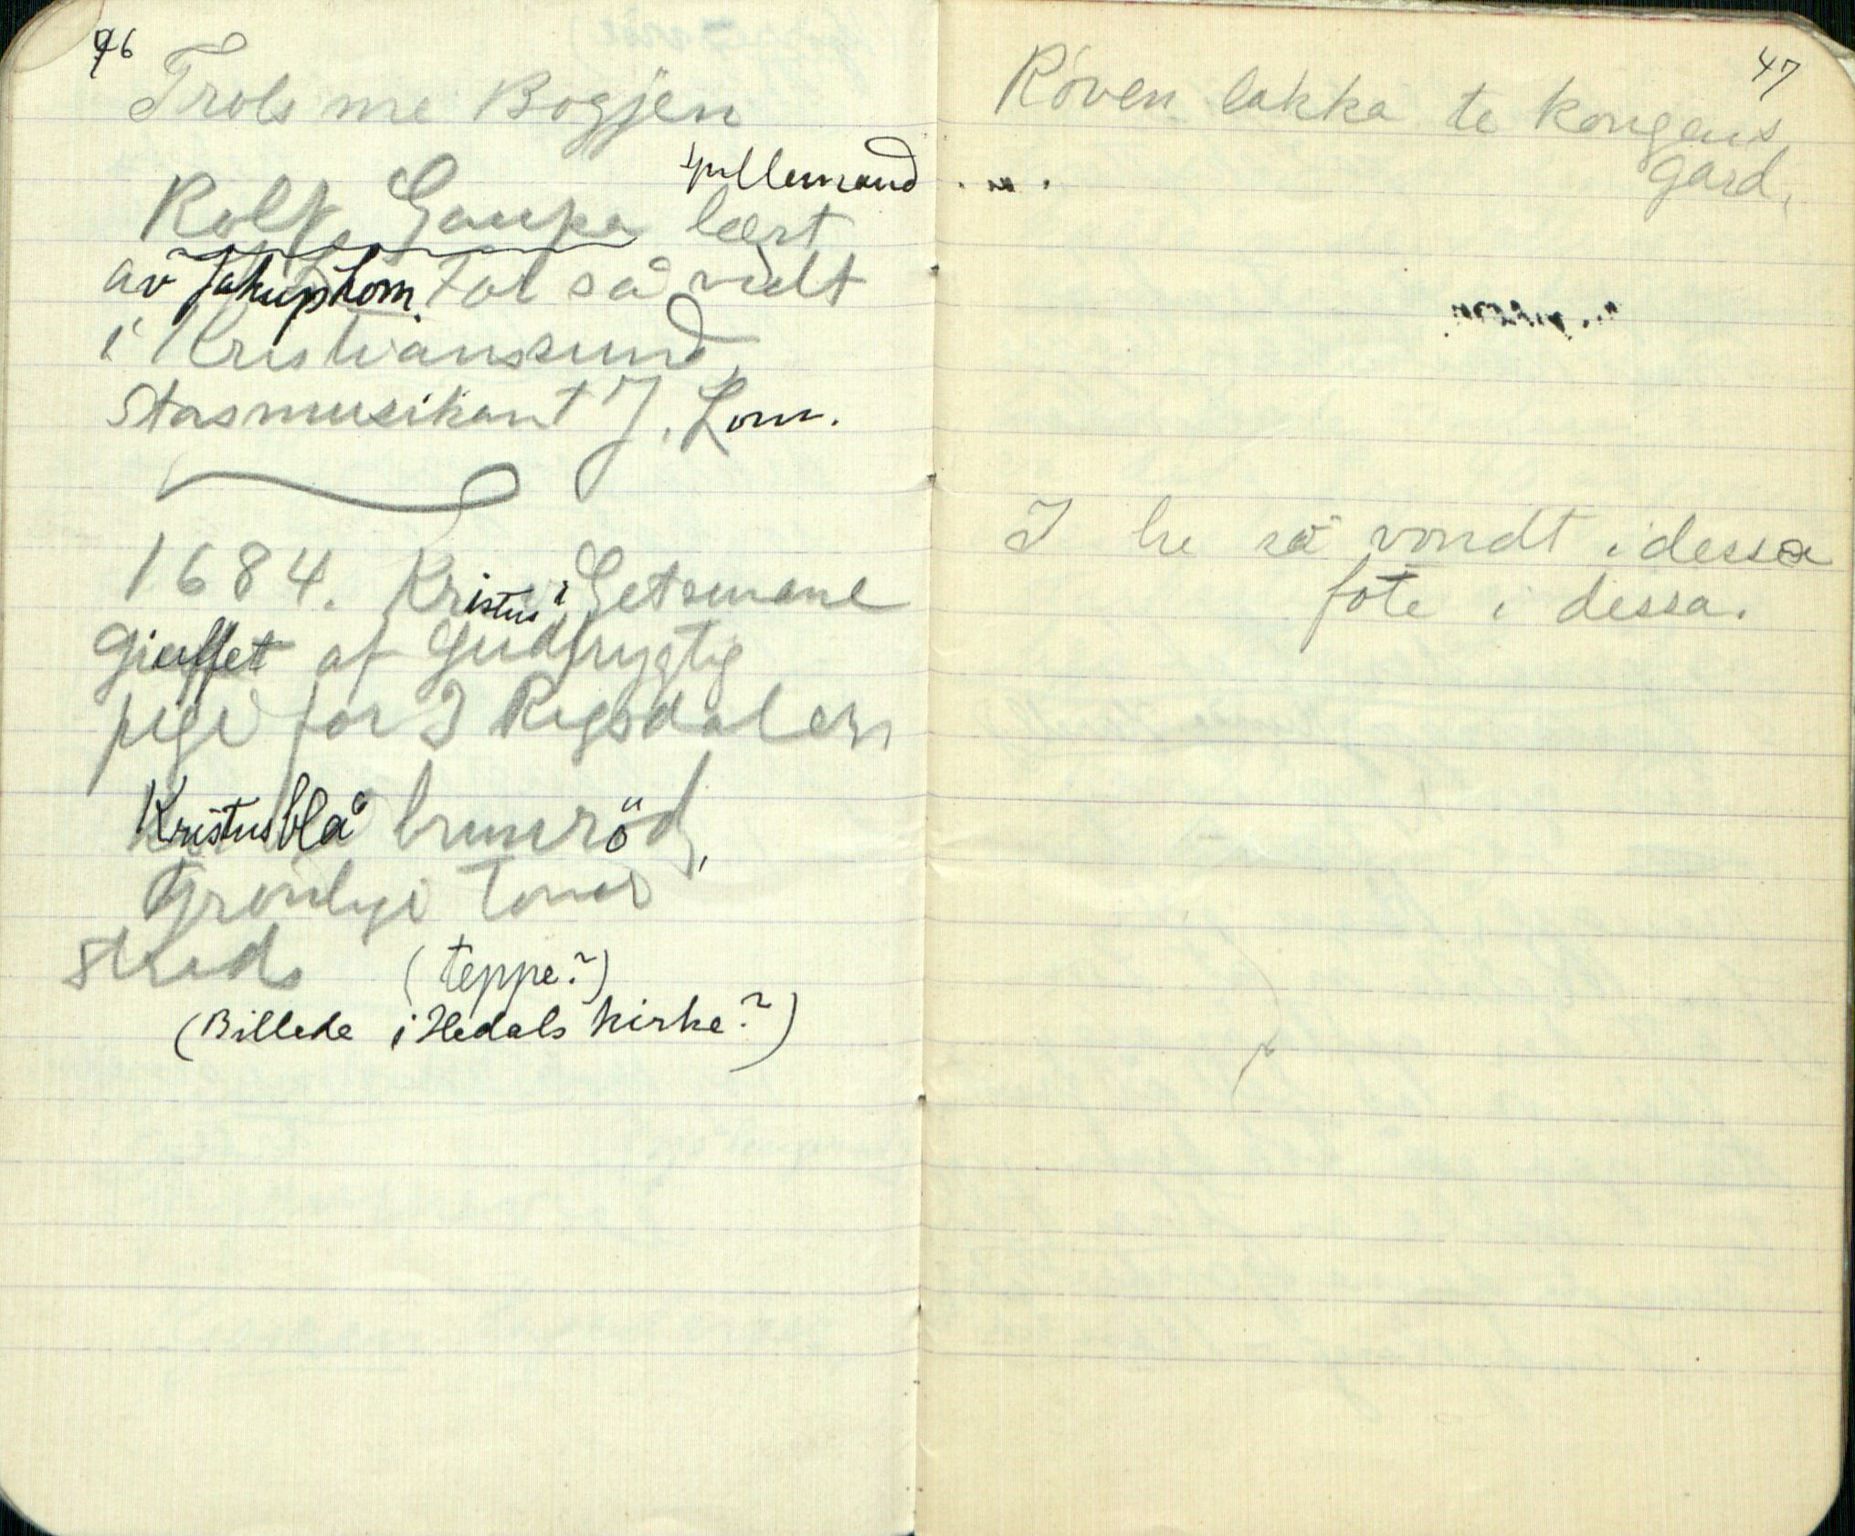 46
Trols me Bogjen
Gullemand
Rolf Gaupa lært
av Jakup Lom. For så vidt
i Kristianssund,
Stasmusikant J. Lom.
1684. Kristus i Getsemane
Gieffet af Gudfrygtig
pige for 3 Rigsdalers
Kristus blå brunröd,
Grønlige toner
steds (teppe?)
(Billede i Hedals kirke?)
47
Røven lakka te kongens
gard,
I he så vondt i dessa
føte i dessa.